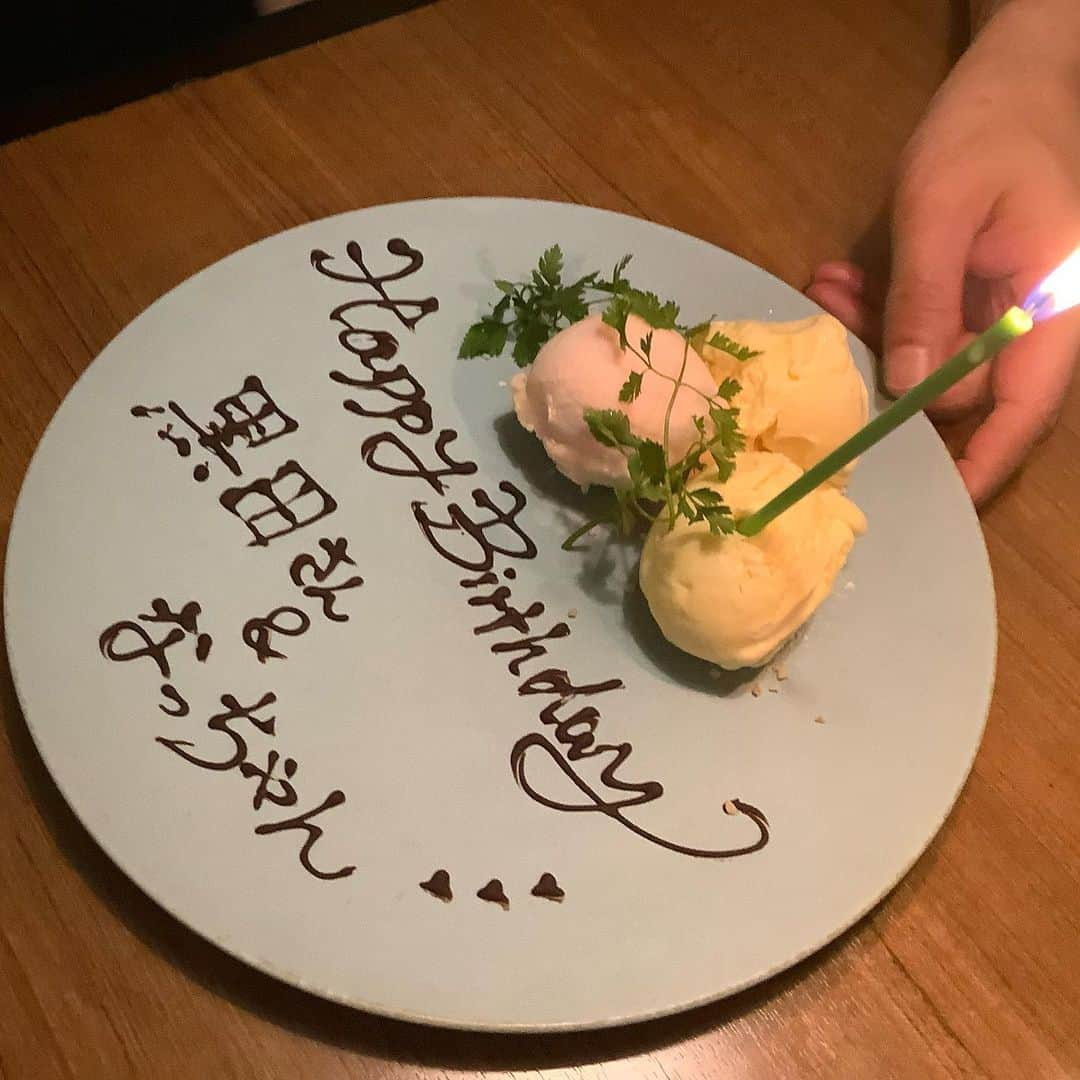 Happy Birthday
黒田さん
&
なっちゃん